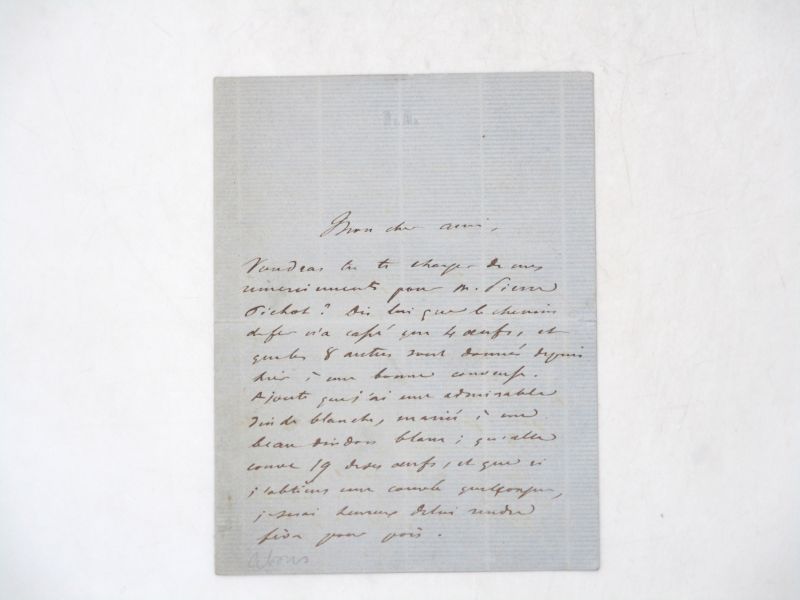 Mon cher ami,
Voudras tu te charger de mes
remerciements pour M. Pierre
Pichot? Dis lui que le chemin
de fer n'a cassé que 4 œufs, et
que les 8 autres sont donnés depuis
hier à une bonne couveuse.
Ajoute que j'ai une admirable
dinde blanche, mariée à un
beau dindon blanc; qu'elle
couve 19 de ses œufs, et que si
j'obtiens une couvée quelconque,
je serai heureux de lui rendre
fève pour pois.